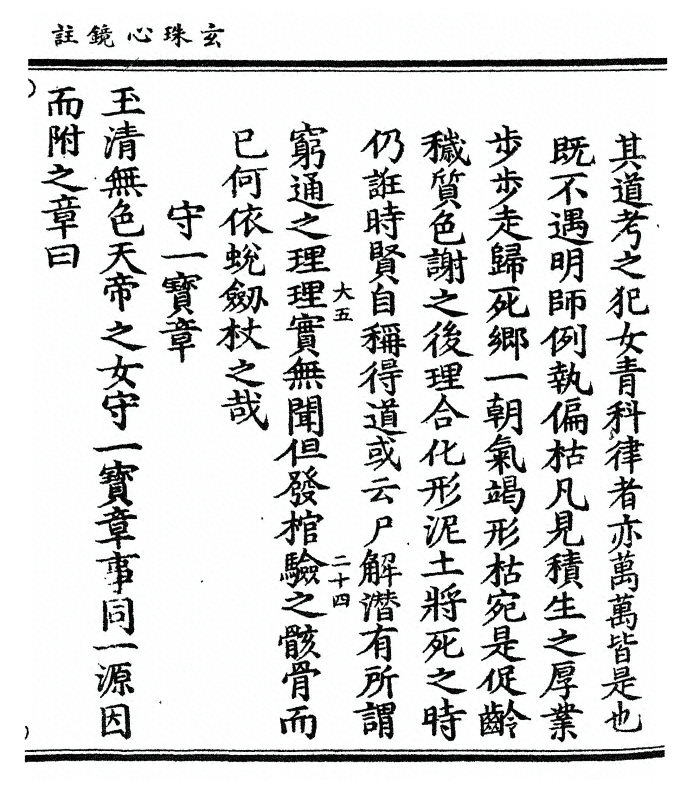 玄珠心鏡註
其道考之犯女青科律者亦萬萬皆是也
既不遇明師例執偏枯凡見積生之厚業
步步走歸死鄉一朝氣竭形枯宛是促齡
穢質色謝之後理合化形泥土將死之時
仍誑時賢自稱得道或云尸解潛有所謂
大五
二十四
窮通之理理實無聞但發棺驗之骸骨而
已何依蛻劔杖之哉
守一寶章
玉清無色天帝之女守一寶章事同一源因
而附之章曰